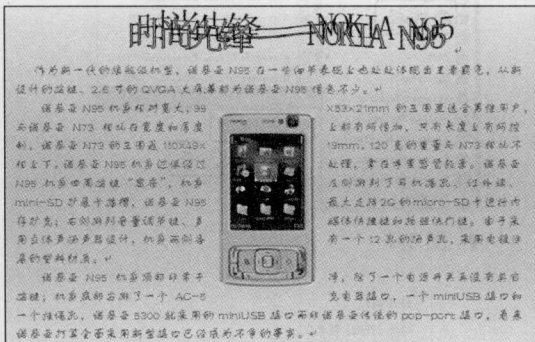 时尚先锋——NOKIA N95
作为新一代的旗舰级机型,诺基亚 N95 在一些细节表现上也处处体现出王者霸气。从新
设计的按键、2.6 寸的 QVGA 大屏幕都为诺基亚 N95 增色不少。
诺基亚 N95 机身相对宽大,99 X53×21mm 的三围更适合男性用户,
与诺基亚 N73 相比在宽度和厚度 上都有所增加,只有长度上有所控
制,诺基亚 N73 的三围是 110X49X 19mm,120 克的重量与 N73 相比不
相上下,诺基亚 N95 机身过渡经过 处理,拿在手里感觉较好。诺基亚
N95 机身四周按键 左侧排列了耳机插孔、红外线、
mini-SD 扩展卡插槽,诺基亚 N95 最大支持2G的micro-SD卡进行内
存扩充;右侧排列音量调节键、 媒体快捷键和拍照快门键。由于采
用立体声扬声器设计,机身两侧各 有一个 12 孔的扬声孔,采用电镀
的塑料材质。
诺基亚 N95 机身顶部非常干 净,除了一个电源开关在没有其它
按键;机身底部安排了一个 AC-5 充电器接口,一个 miniUSB 接口和
一个挂绳孔,诺基亚 5300 就采用的 miniUSB 接口而非诺基亚传统的 pop-port 接口,看来
诺基亚打算全面采用新型接口已经成为不争的事实。